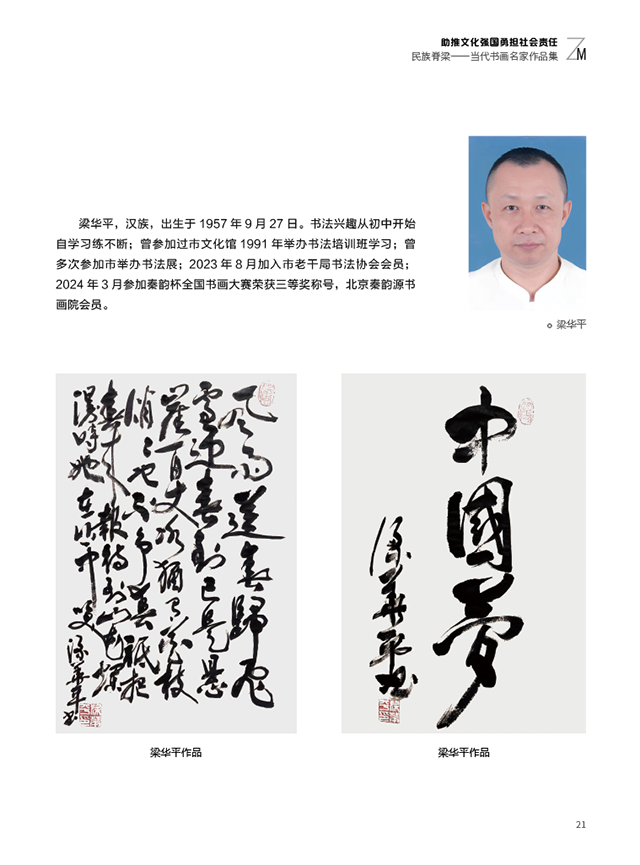 助推文化强国勇担社会责任
民族脊梁——当代书画名家作品集
ZM
梁华平，汉族，出生于 1957 年 9 月 27 日。书法兴趣从初中开始
自学习练不断；曾参加过市文化馆 1991 年举办书法培训班学习；曾
多次参加市举办书法展；2023 年 8 月加入市老干局书法协会会员；
2024 年 3 月参加秦韵杯全国书画大赛荣获三等奖称号，北京秦韵源书
画院会员。
梁华平
风雨送春歸飛
雪迎春到已是懸
崖百丈冰猶有花枝
俏〻也不争春祇把
春来報待到山花爛
漫時她在丛中笑 梁華平书
中國夢
梁華平书
梁华平作品
梁华平作品
21